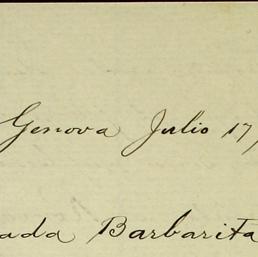 Genova Julio 17,
ada Barbarita